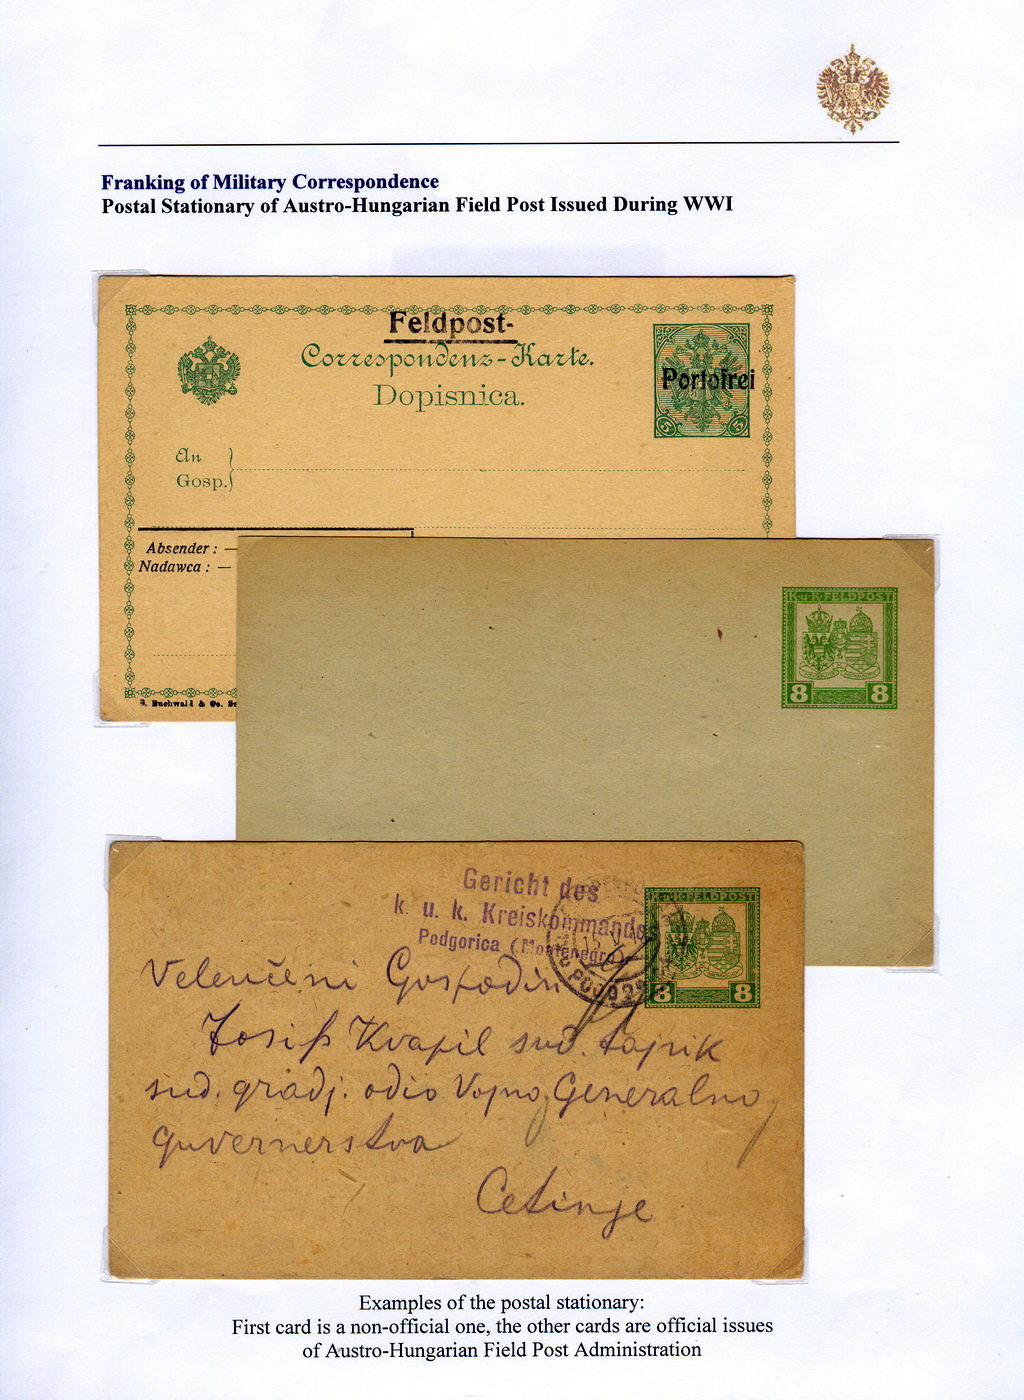 Franking of Military Correspondence
Postal Stationary of Austro-Hungarian Field Post Issued During WWI
Feldpost-
Correspondenz-Karte.
Dopisnica.
Portofrei
5 5
An
Gosp.
Absender : —
Nadawca : —
K·u·K·FELDPOST
8 8
Gericht des
k. u. k. Kreiskommandos
Podgorica (Montenegro)
K·u·K·FELDPOST
8 8
Velenčeni Gospodin
Josip Kvapil sud. tajnik
sud. gradj. odio Vojno Generalno
guvernerstva
Cetinje
Examples of the postal stationary:
First card is a non-official one, the other cards are official issues
of Austro-Hungarian Field Post Administration